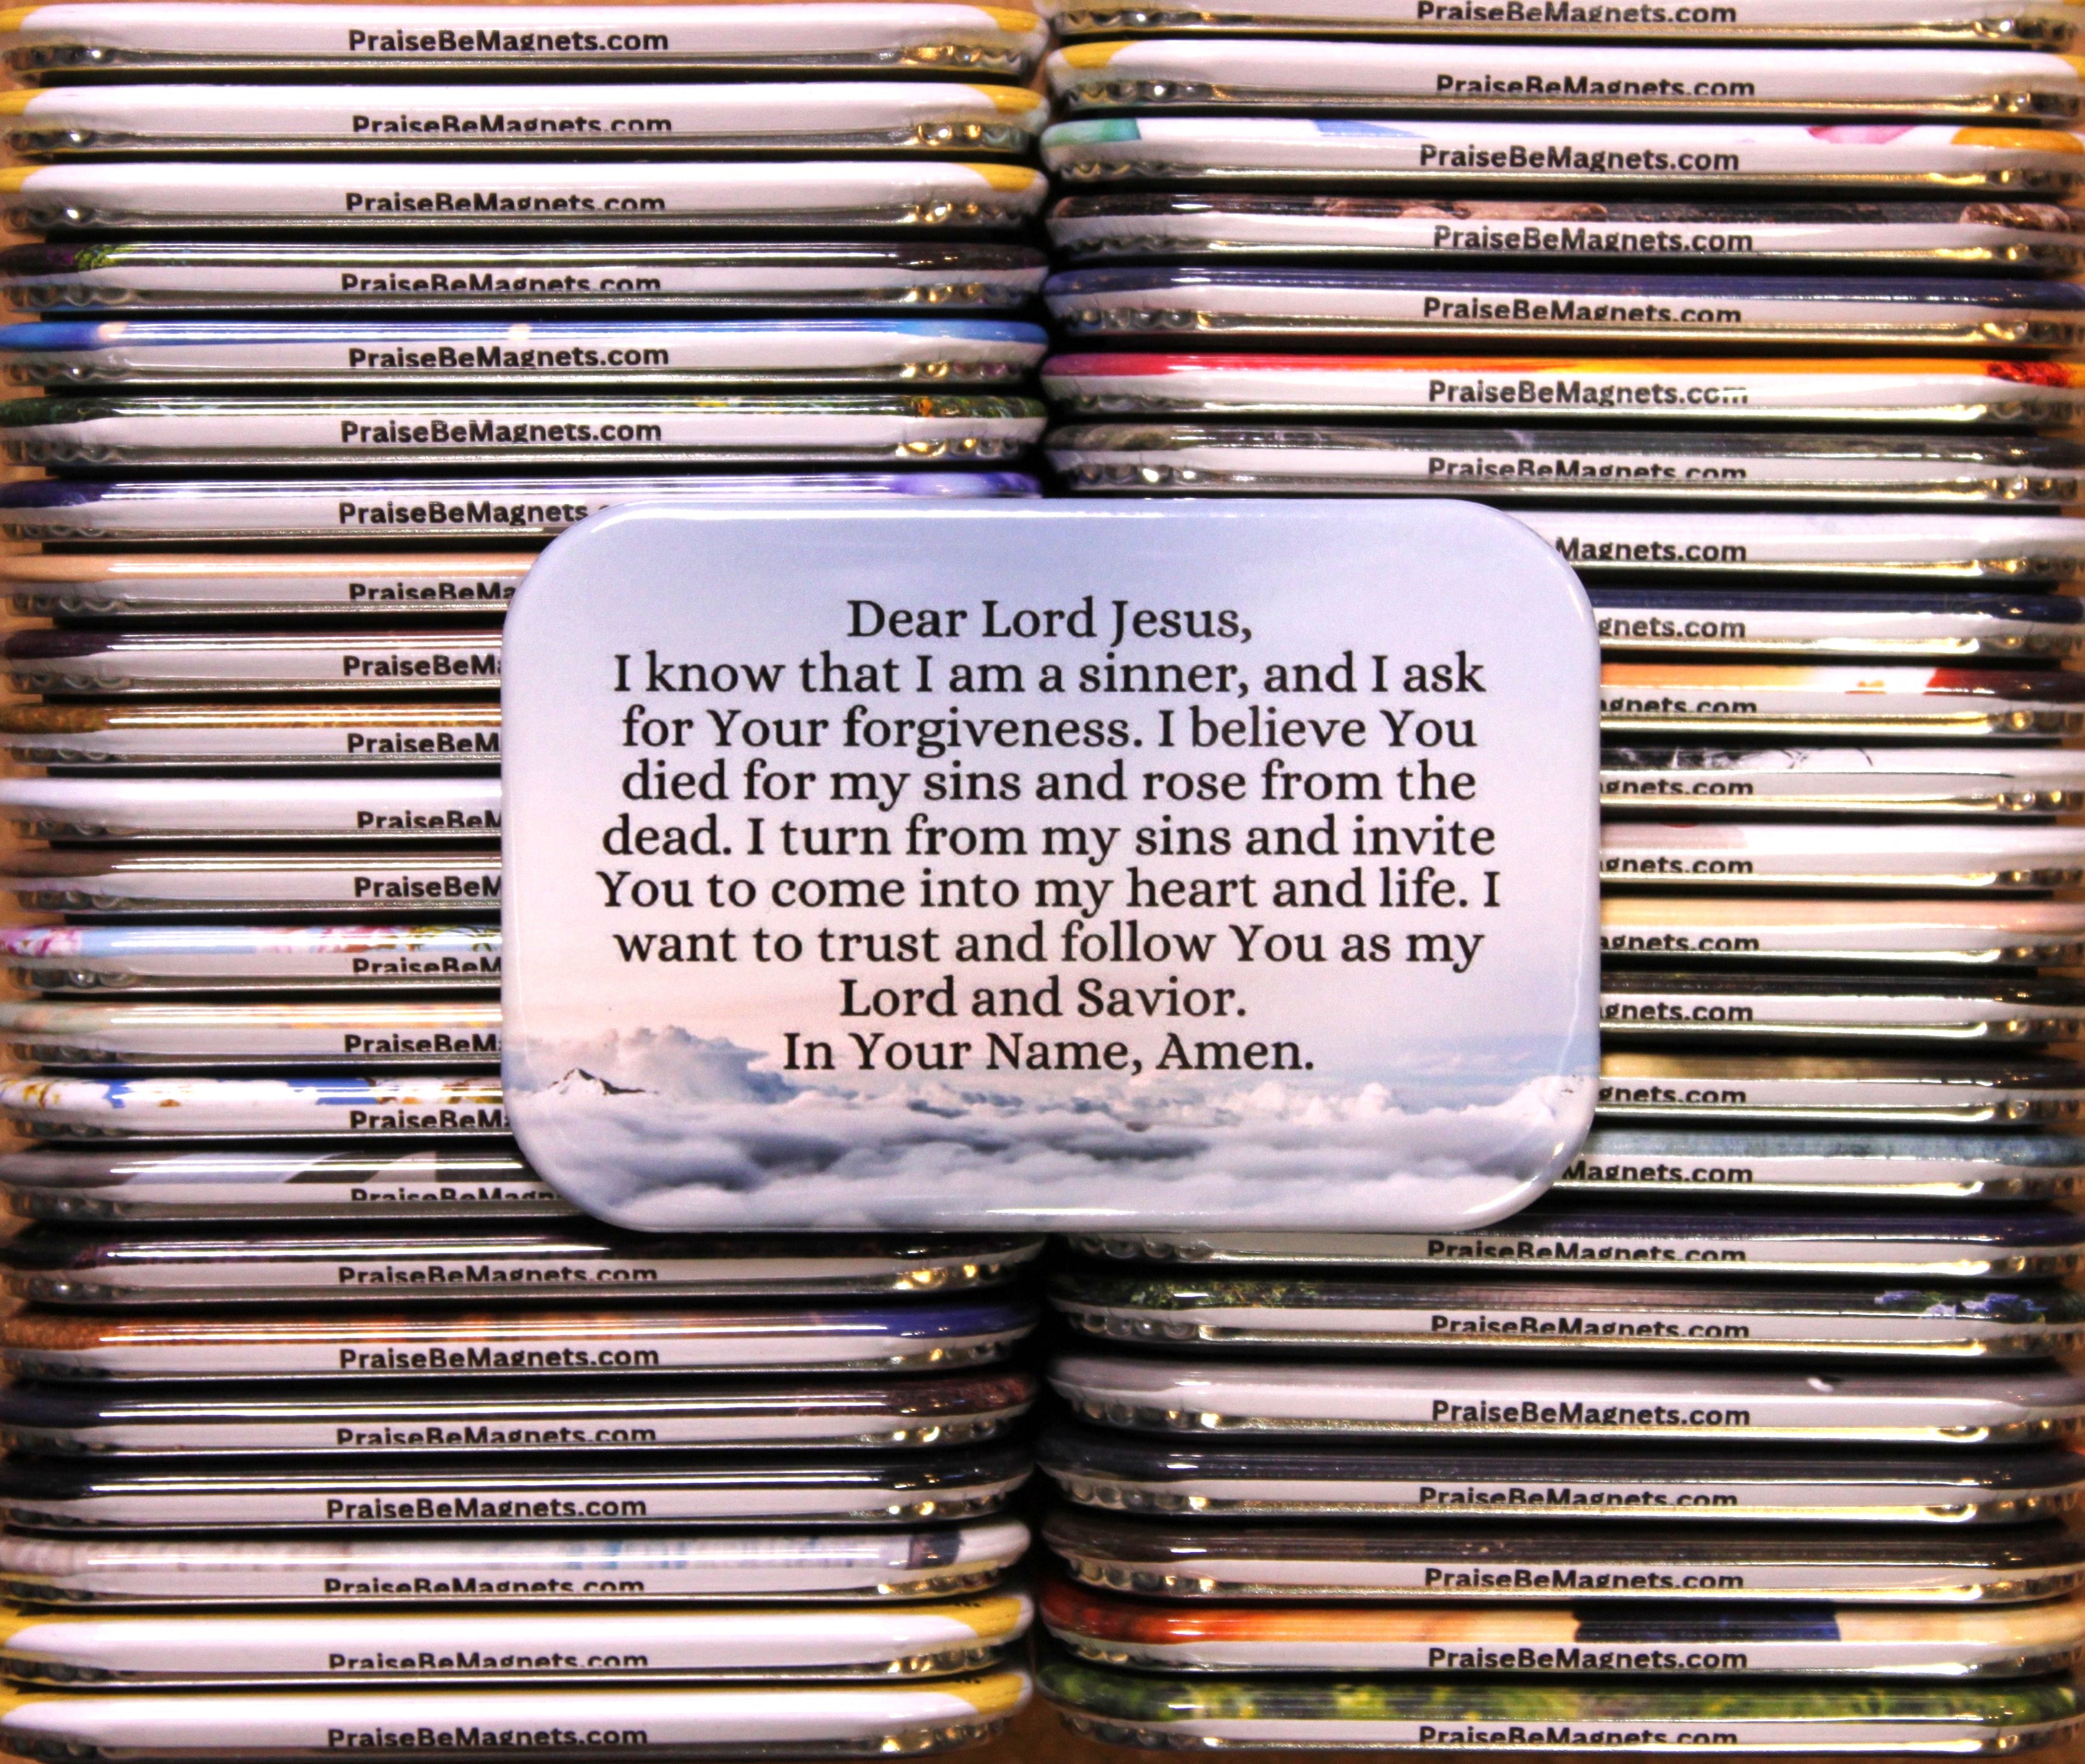 PraiseBeMagnets.com
PraiseBeMagnets.com
PraiseBeMagnets.com
PraiseBeMagnets.com
PraiseBeMagnets.com
PraiseBeMagnets.com
PraiseBeMagnets
PraiseBeMa
PraiseBeM
PraiseBeM
PraiseBeM
PraiseBeM
PraiseBeM
PraiseBeM
PraiseBeM
PraiseBeMagn
PraiseBeMagnets.com
PraiseBeMagnets.com
PraiseBeMagnets.com
PraiseBeMagnets.com
PraiseBeMagnets.com
PraiseBeMagnets.com
PraiseBeMagnets.com
Dear Lord Jesus,
I know that I am a sinner, and I ask
for Your forgiveness. I believe You
died for my sins and rose from the
dead. I turn from my sins and invite
You to come into my heart and life. I
want to trust and follow You as my
Lord and Savior.
In Your Name, Amen.
PraiseBeMagnets.com
PraiseBeMagnets.com
PraiseBeMagnets.com
PraiseBeMagnets.com
PraiseBeMagnets.com
PraiseBeMagnets.com
PraiseBeMagnets.com
Magnets.com
gnets.com
gnets.com
gnets.com
gnets.com
agnets.com
gnets.com
gnets.com
Magnets.com
PraiseBeMagnets.com
PraiseBeMagnets.com
PraiseBeMagnets.com
PraiseBeMagnets.com
PraiseBeMagnets.com
PraiseBeMagnets.com
PraiseBeMagnets.com